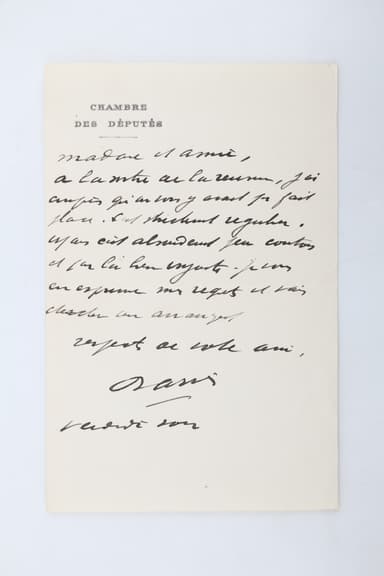 CHAMBRE
DES DÉPUTÉS
Madame et amie,
a la sortie de la reunion, j'ai
qu'on vous y avait pas fait
place. C'est strictement regulier.
Mais c'est absolument peu courtois
et par là bien injuste. je vous
en exprime mes regrets et vais
chercher un
respects de votre ami,
Barrès
vendredi soir